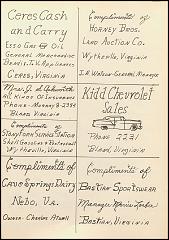 Ceres Cash
and Carry
Esso Gas & Oil
General Merchandise
Bendix T.V. Appliances
Ceres, Virginia
Mrs. R. S.
All Kinds of Insurance
Phone
Bland, Virginia
Compliments
Stony Fork Service Station
Shell Gasoline &
Wytheville, Virginia
Compliments of
Cave Springs Dairy
Nebo, Va.
Owner - Charles Atwell
Compliments of
Horney Bros.
Land Auction Co.
Wytheville, Virginia
General Manager
Kidd Chevrolet
Sales
Phone 2231
Bland, Virginia
Compliments of
Bastian Sportswear
Manager
Bastian, Virginia